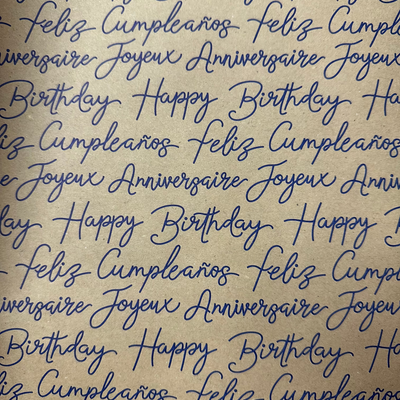 Feliz Cumpleaños Feliz
Anniversaire Joyeux Anniversaire Joyeux
Birthday Happy Birthday
Cumpleaños Feliz Cumpleaños
Joyeux Anniversaire Joyeux
Happy Birthday
Feliz Cumpleaños Feliz
Joyeux Anniversaire
Birthday Happy Birthday
Cumpleaños Feliz Cumpleaños